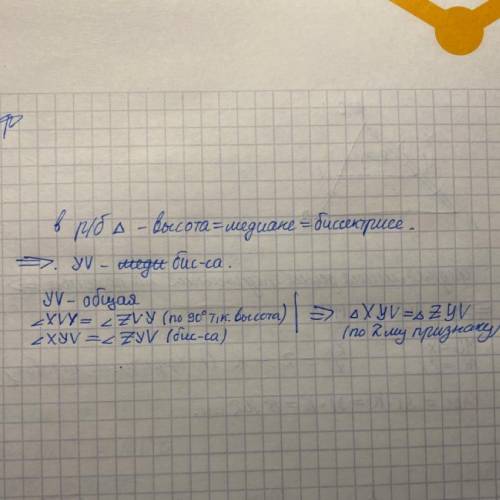 в р/б △ - высота = медиане = биссектрисе.
⇒. YV - меди бис-са.
YV - общая
∠XVY = ∠ZVY (по 90° т.к. высота) | ⇒ △XYV = △ZYV
∠XYV = ∠ZYV (бис-са) (по 2му признаку)